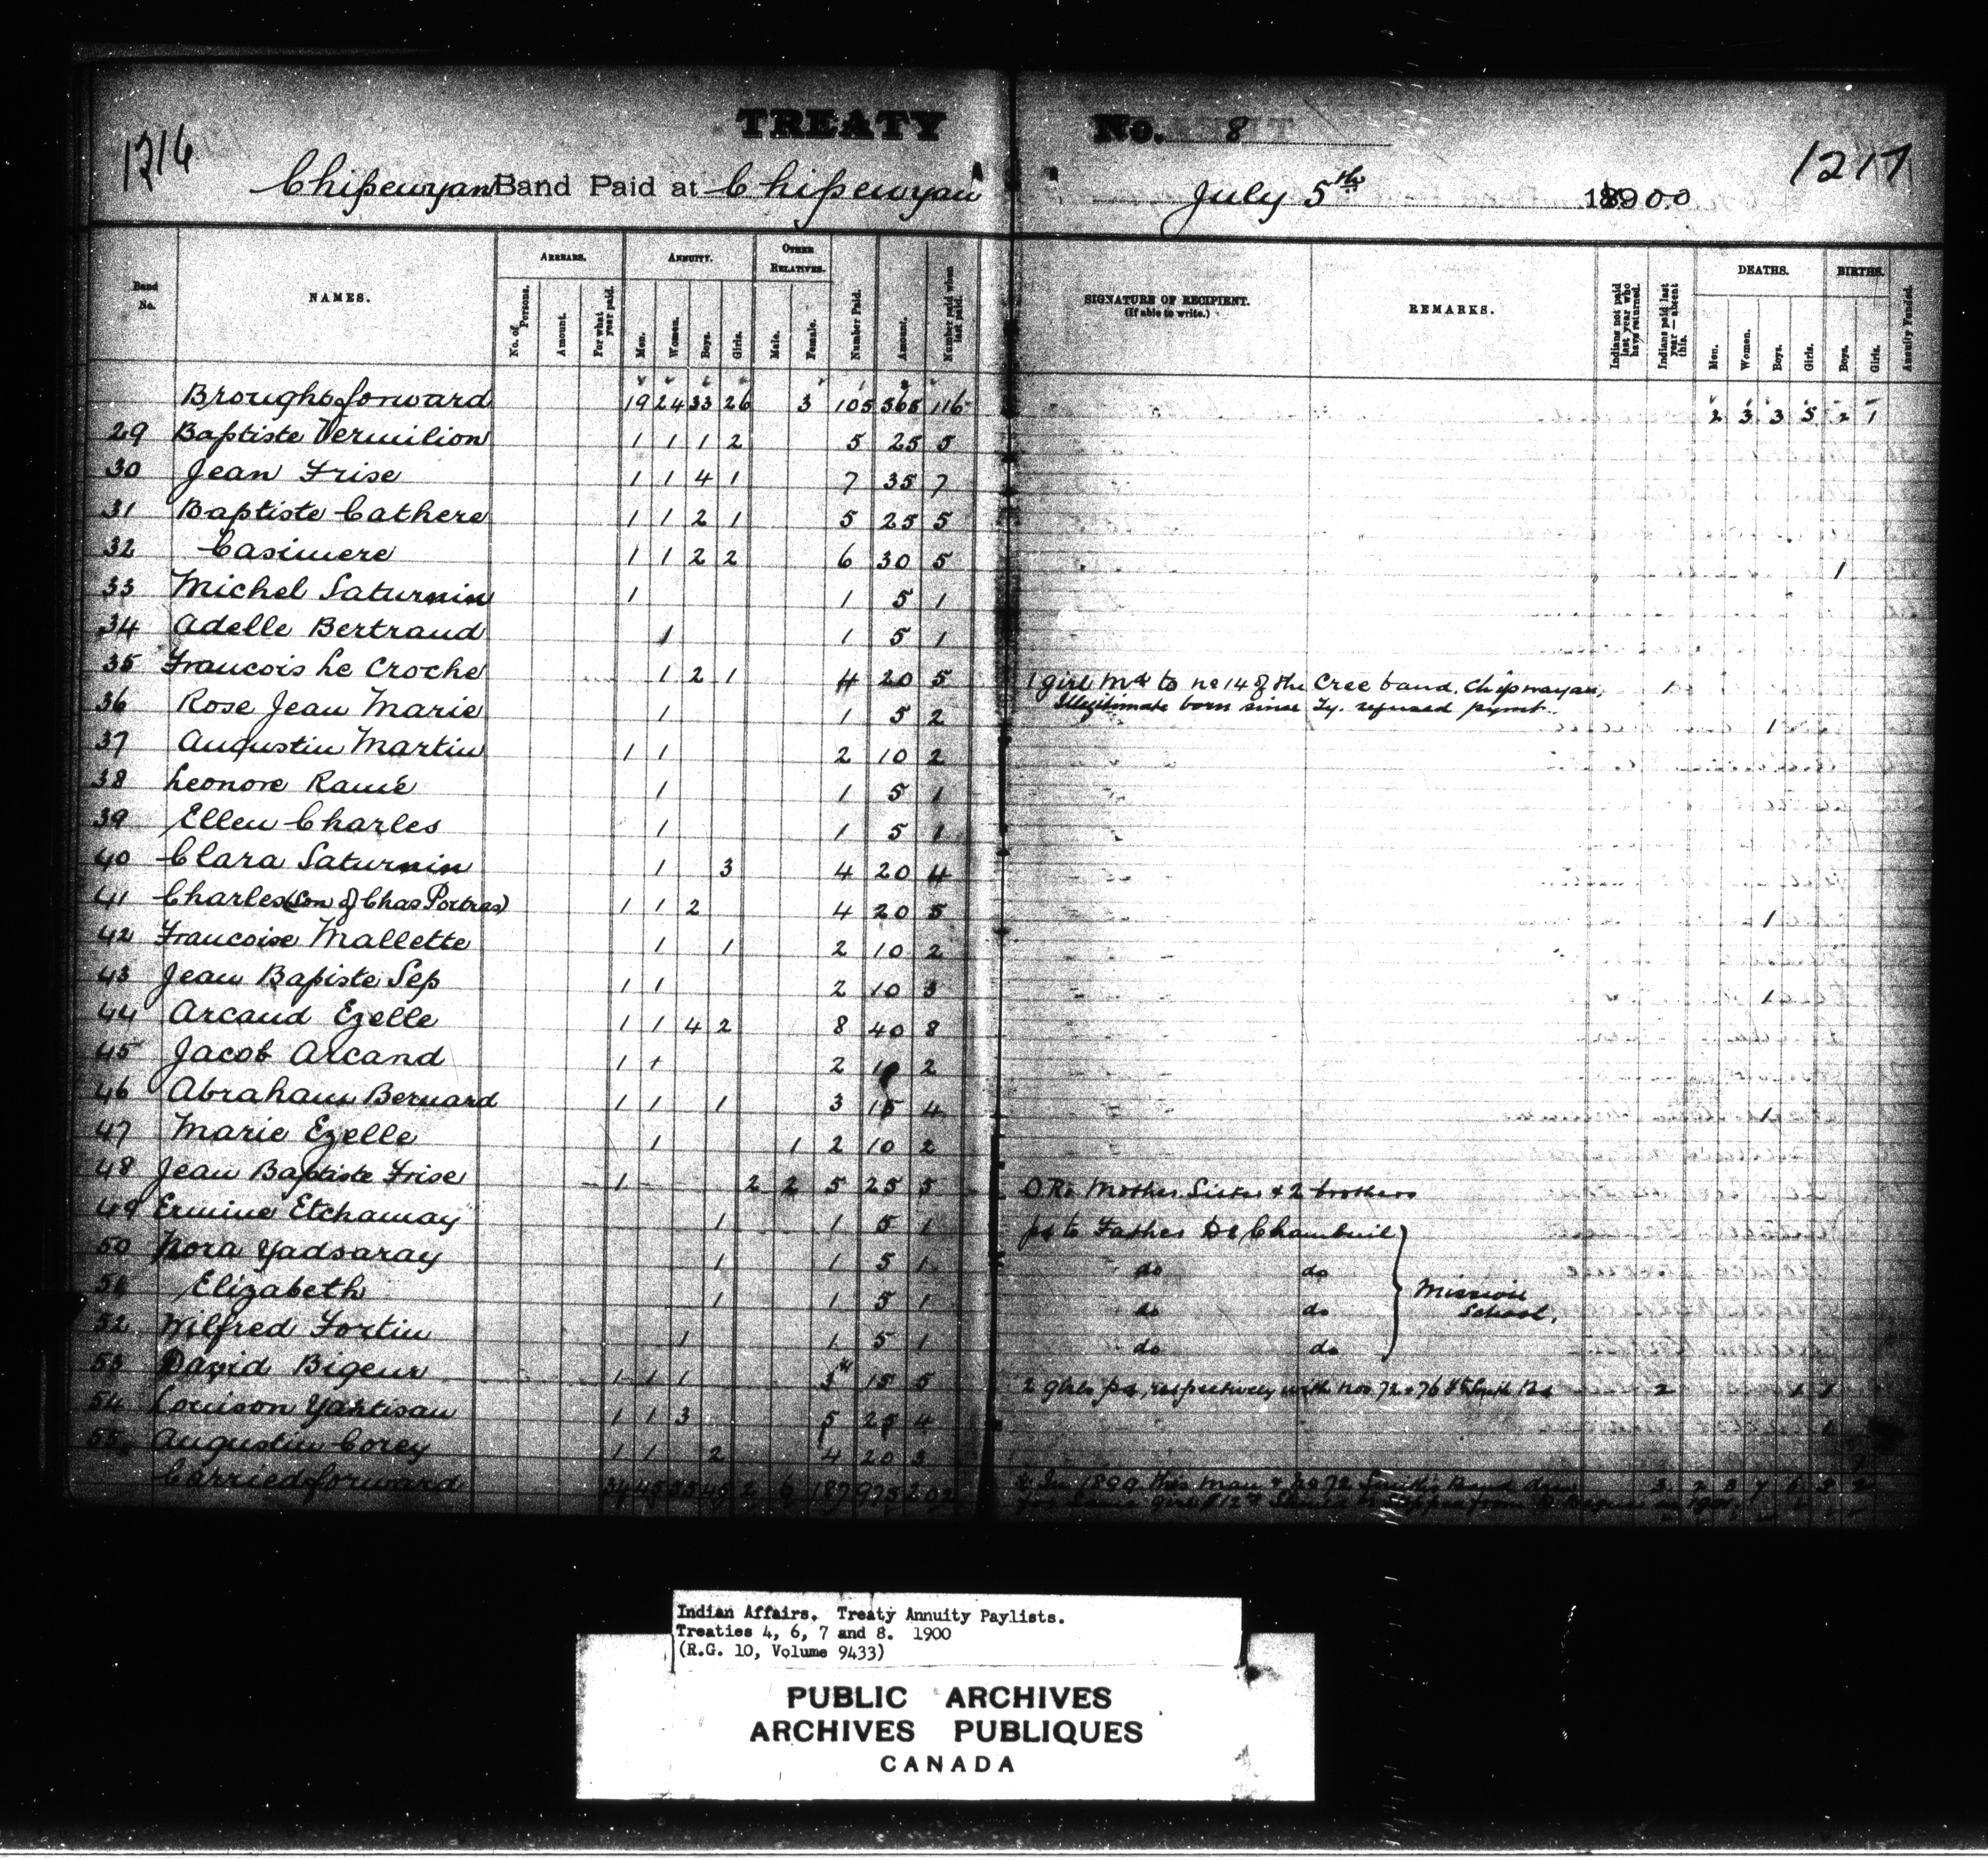 1216
TREATY No. 8
1217
Chipewyan Band Paid at Chipewyan July 5th 1900
Band No.
NAMES.
ARREARS.
No. of Persons.
Amount.
For what year paid.
ANNUITY.
Men.
Women.
Boys.
Girls.
OTHER RELATIVES.
Male.
Female.
Number Paid.
Amount.
Number paid when last paid.
SIGNATURE OF RECIPIENT.
(If able to write.)
REMARKS.
Indians not paid last year who have returned.
Indians paid last year—absent this.
DEATHS.
Men.
Women.
Boys.
Girls.
BIRTHS.
Boys.
Girls.
Annuity Funded.
Brought forward 19 24 33 26 3 105 565 116 2 3 3 5 2 1
29 Baptiste Vermilion 1 1 1 2 5 25 5
30 Jean Frise 1 1 4 1 7 35 7
31 Baptiste Cathere 1 1 2 1 5 25 5
32 Casimere 1 1 2 2 6 30 5 1
33 Michel Saturnin 1 1 5 1
34 Adelle Bertrand 1 1 5 1
35 Francois Le Croche 1 2 1 4 20 5 1 girl Md to no 14 of the Cree band, Chipwayan, 1
36 Rose Jean Marie 1 1 5 2 Illegitimate born since Ty. refused paymt. 1
37 Augustin Martin 1 1 2 10 2
38 Leonore Ramé 1 1 5 1
39 Ellen Charles 1 1 5 1
40 Clara Saturnin 1 3 4 20 4
41 Charles (Son of Chas Portras) 1 1 2 4 20 5 1
42 Francoise Mallette 1 1 2 10 2
43 Jean Bapiste Sep 1 1 2 10 3 1
44 Arcand Ezelle 1 1 4 2 8 40 8
45 Jacob Arcand 1 1 2 10 2
46 Abraham Bernard 1 1 1 3 15 4 1
47 Marie Ezelle 1 1 2 10 2
48 Jean Baptiste Frise 1 2 2 5 25 5 O.R. Mother Sister & 2 brothers
49 Ermine Etchamay 1 1 5 1 pd to Father De Chambeuil
50 Nora Yadsaray 1 1 5 1 do do
51 Elizabeth 1 1 5 1 do do Mission School.
52 Wilfred Fortin 1 1 5 1 do do
53 David Bigeur 1 1 1 3 15 5 2 girls pd, respectively with nos 72 & 76 2 1 1
54 Louison Yahtisau 1 1 3 5 25 4 1
55 Augustin Corey 1 1 2 4 20 3
Carried forward 34 45 55 49 2 6 187 975 202
Indian Affairs. Treaty Annuity Paylists.
Treaties 4, 6, 7 and 8. 1900
(R.G. 10, Volume 9433)
PUBLIC ARCHIVES
ARCHIVES PUBLIQUES
CANADA